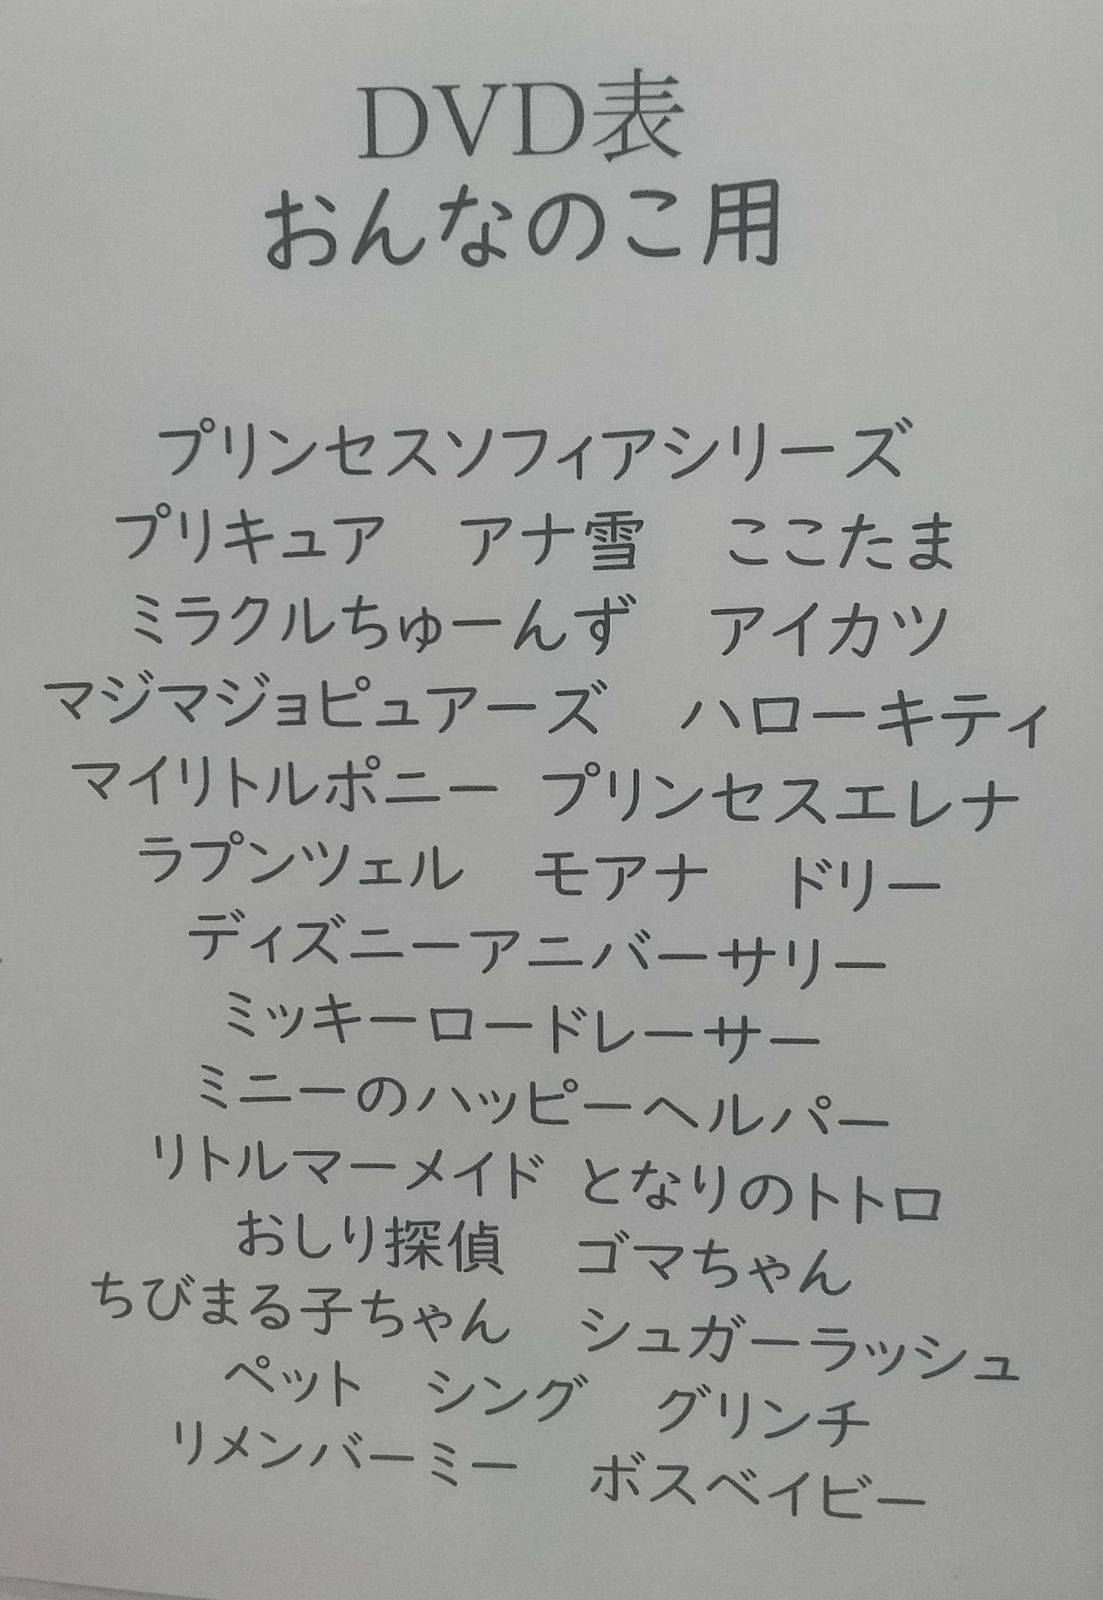 DVD表
おんなのこ用
プリンセスソフィアシリーズ
プリキュア　アナ雪　ここたま
ミラクルちゅーんず　アイカツ
マジマジョピュアーズ　ハローキティ
マイリトルポニー　プリンセスエレナ
ラプンツェル　モアナ　ドリー
ディズニーアニバーサリー
ミッキーロードレーサー
ミニーのハッピーヘルパー
リトルマーメイド　となりのトトロ
おしり探偵　ゴマちゃん
ちびまる子ちゃん　シュガーラッシュ
ペット　シング　グリンチ
リメンバーミー　ボスベイビー